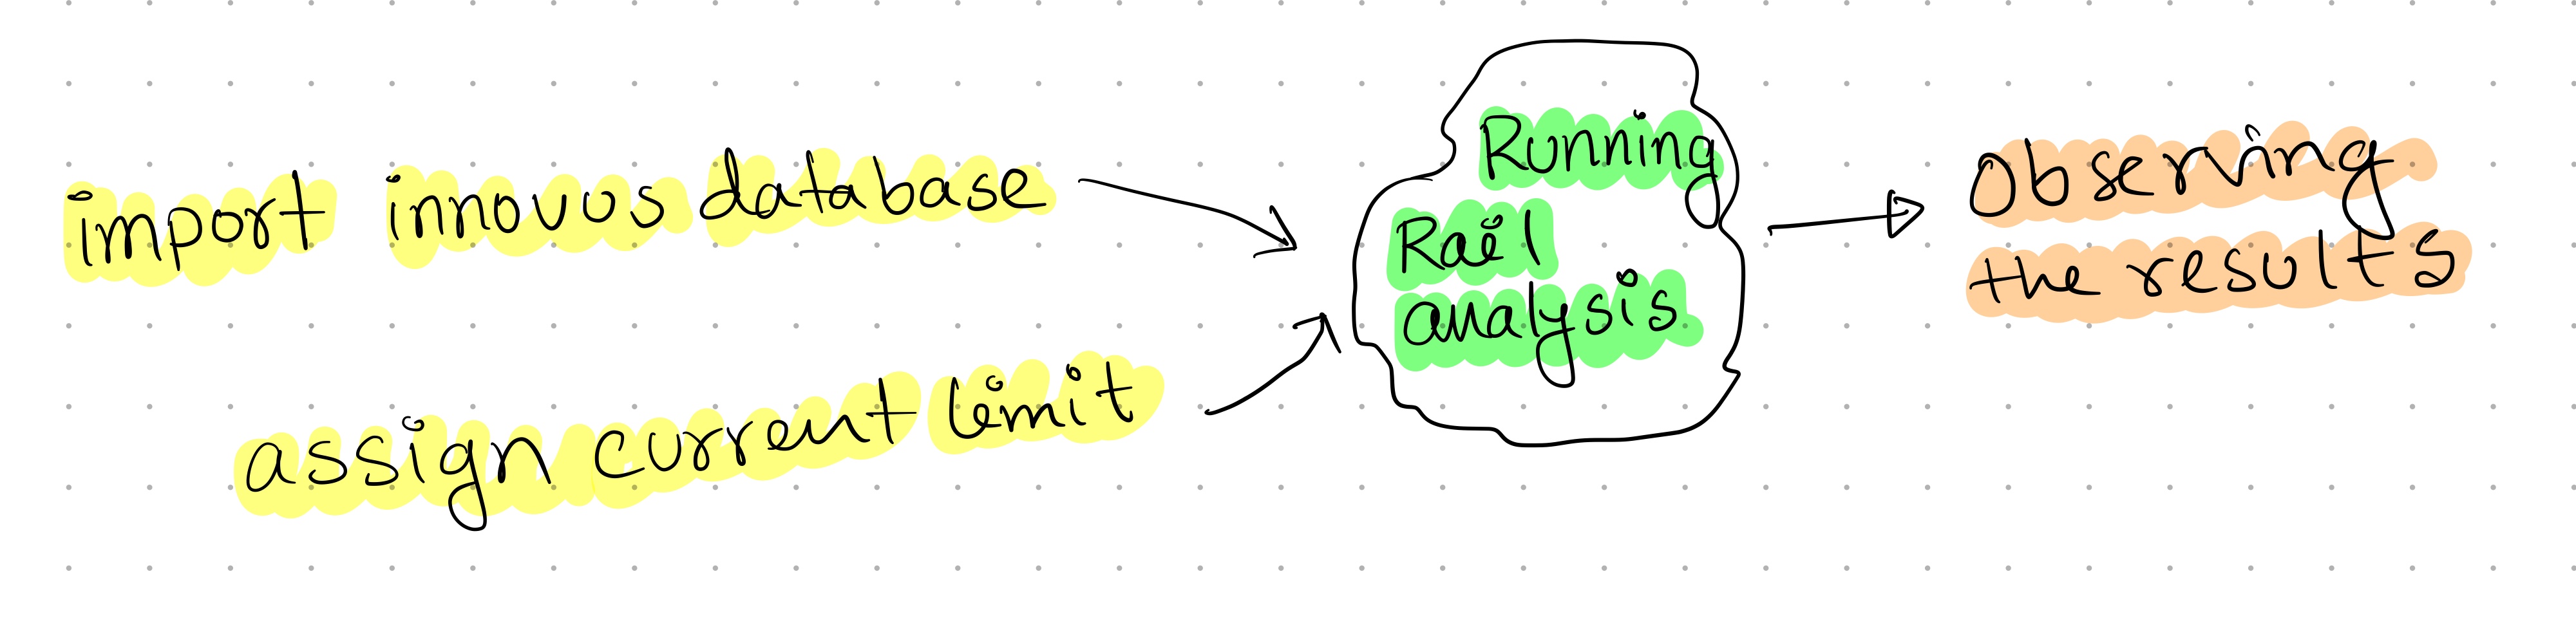 import innovus database
assign current limit
Running
Rail
analysis
Observing
the results